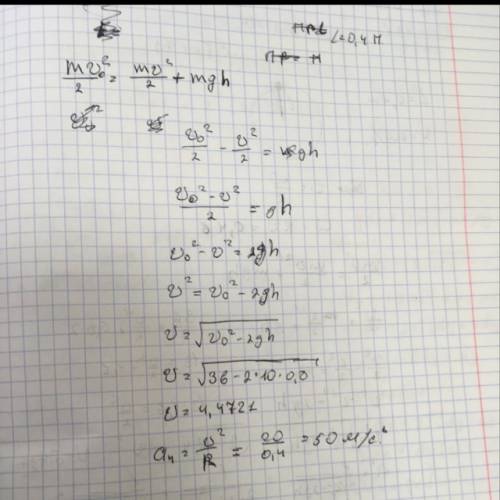 L=0,4 м
mv₀²/2 = mv²/2 + mgh
v₀²/2 - v²/2 = gh
(v₀² - v²)/2 = gh
v₀² - v² = 2gh
v² = v₀² - 2gh
v = √(v₀² - 2gh)
v = √(36 - 2·10·0,8)
v = 4,4721
aₙ = v²/R = 20/0,4 = 50 м/с²